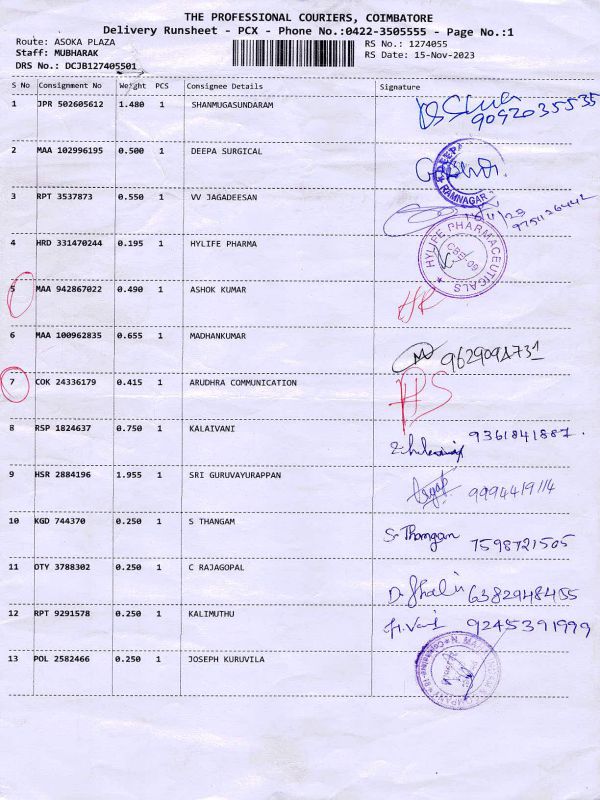 THE PROFESSIONAL COURIERS, COIMBATORE
Delivery Runsheet - PCX - Phone No.:0422-3505555 - Page No.:1
Route: ASOKA PLAZA RS No.: 1274055
Staff: MUBHARAK RS Date: 15-Nov-2023
DRS No.: DCJB127405501
S No Consignment No Weight PCS Consignee Details Signature
1 JPR 502605612 1.480 1 SHANMUGASUNDARAM 9092035535
2 MAA 102996195 0.500 1 DEEPA SURGICAL DEEPA RAMNAGAR
3 RPT 3537873 0.550 1 VV JAGADEESAN
4 HRD 331470244 0.195 1 HYLIFE PHARMA HYLIFE PHARMACEUTICALS CBE-09
5 MAA 942867022 0.490 1 ASHOK KUMAR
6 MAA 100962835 0.655 1 MADHANKUMAR
7 COK 24336179 0.415 1 ARUDHRA COMMUNICATION
8 RSP 1824637 0.750 1 KALAIVANI 9361841887.
9 HSR 2884196 1.955 1 SRI GURUVAYURAPPAN 9994419114
10 KGD 744370 0.250 1 S THANGAM S. Thangam 7598721505
11 OTY 3788302 0.250 1 C RAJAGOPAL 6382948455
12 RPT 9291578 0.250 1 KALIMUTHU 9245391999
13 POL 2582466 0.250 1 JOSEPH KURUVILA